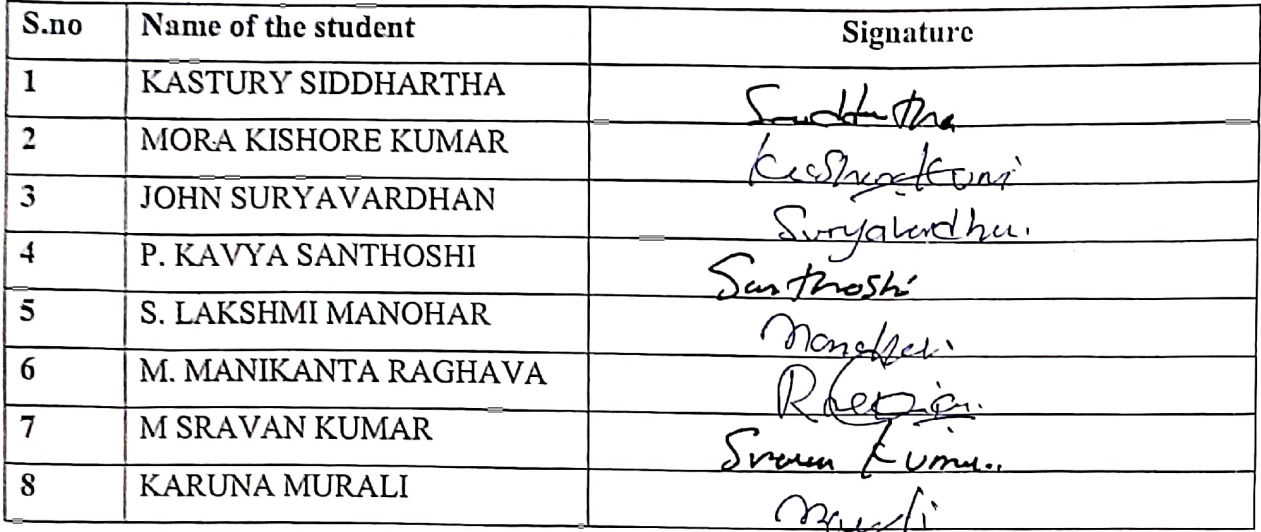 S.no Name of the student Signature
1 KASTURY SIDDHARTHA Siddhartha
2 MORA KISHORE KUMAR
3 JOHN SURYAVARDHAN Suryavardhan.
4 P. KAVYA SANTHOSHI Santhoshi
5 S. LAKSHMI MANOHAR Manohar
6 M. MANIKANTA RAGHAVA
7 M SRAVAN KUMAR Sravan Kumar.
8 KARUNA MURALI Murali